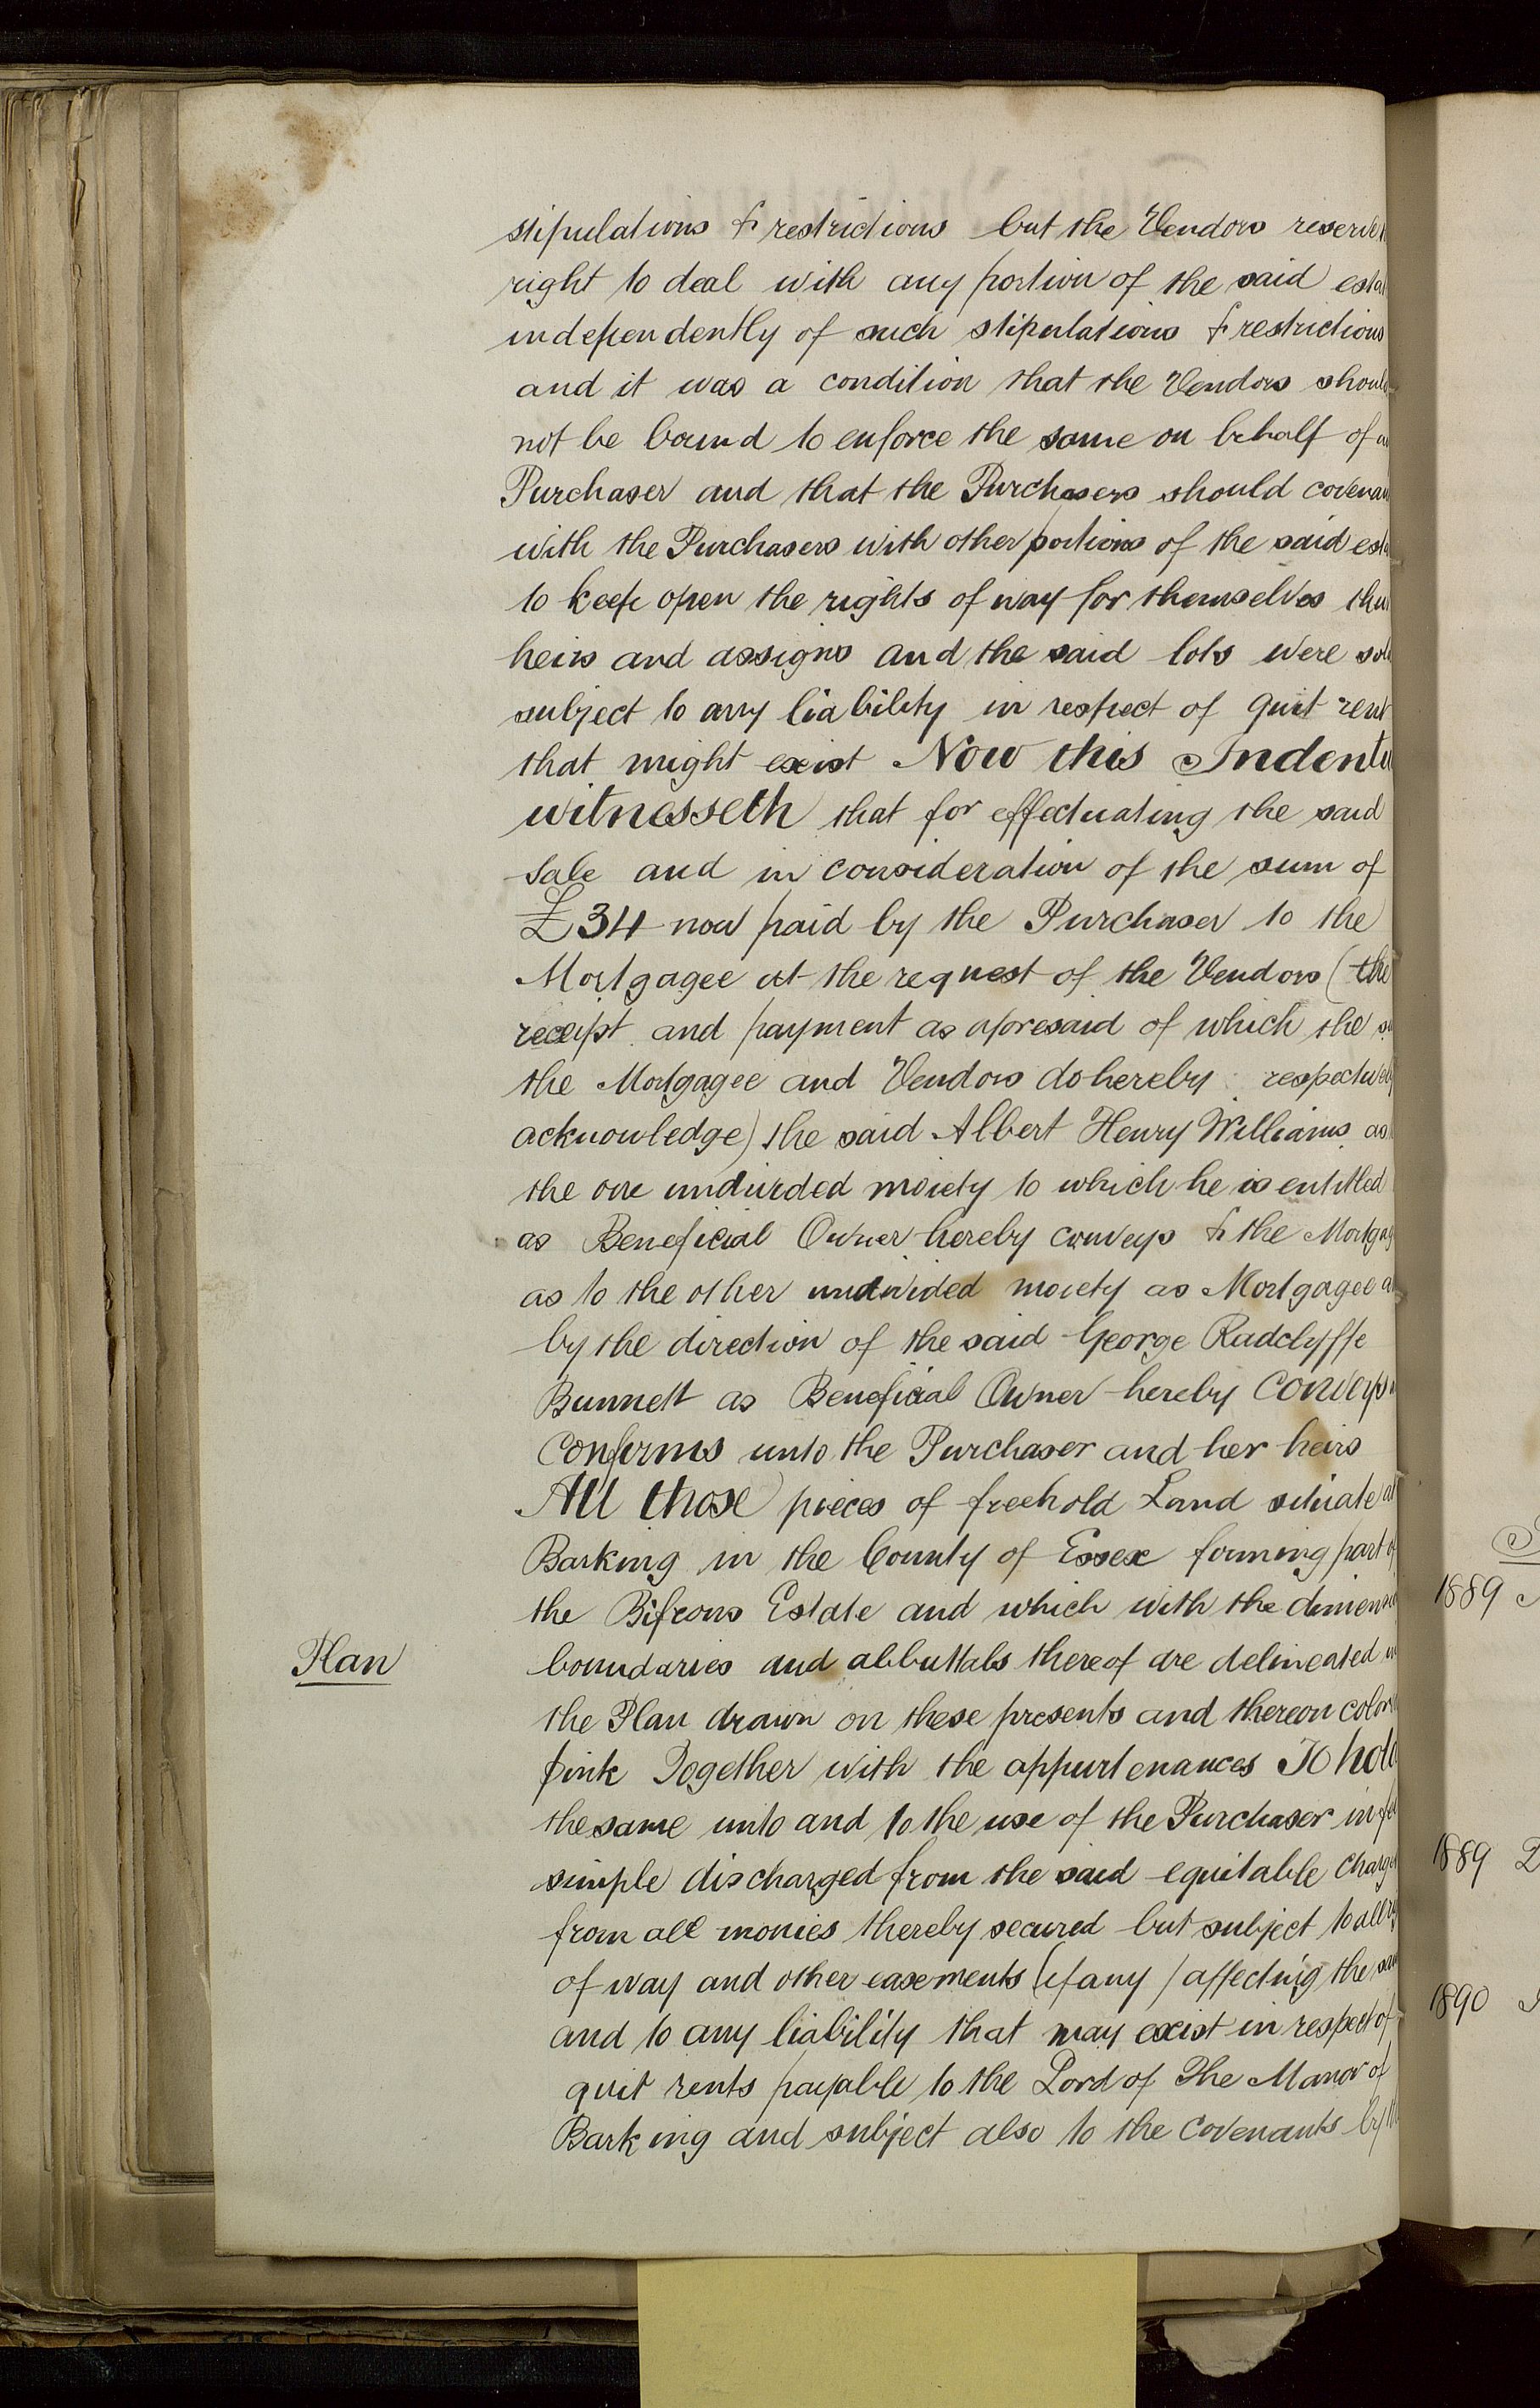 stipulations & restrictions but the Vendors reserved
right to deal with any portion of the said estat
independently of such stipulations & restrictions
and it was a condition that the Vendors should
not be bound to enforce the same on behalf of
Purchaser and that the Purchasers should covenan
with the Purchasers with other portions of the said esta
to keep open the rights of way for themselves their
heirs and assigns and the said lots were sol
subject to any liability in respect of quit rent
that might exist Now this Indentu
witnesseth that for effectuating the said
Sale and in consideration of the sum of
£34 now paid by the Purchaser to the
Mortgagee at the request of the Vendors (the
receipt and payment as aforesaid of which the
the Mortgagee and Vendors do hereby respectively
acknowledge) the said Albert Henry Williams as
the one undivided moiety to which he is entitled
as Beneficial Owner hereby conveys & the Mortgag
as to the other undivided moiety as Mortgagee a
by the direction of the said George Radclyffe
Bunnett as Beneficial Owner hereby Conveys
Confirms unto the Purchaser and her heirs
All those pieces of freehold Land situate at
Barking in the County of Essex forming part of
the Bifrons Estate and which with the dimens
Plan
boundaries and abbuttals thereof are delineated in
the Plan drawn on these presents and thereon color
pink Together with the appurtenances To hold
the same unto and to the use of the Purchaser in fee
simple discharged from the said equitable Charge
from all monies thereby secured but subject to all
of way and other easements (if any / affecting the sam
and to any liability that may exist in respect of
quit rents payable to the Lord of The Manor of
Barking and subject also to the Covenants by th
1889
1889
1890